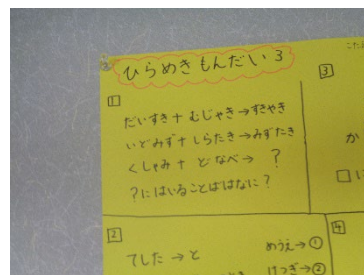 ひらめきもんだい3
1
だいすき+むじゃき→すきやき
いどみず+しらたき→みずたき
くしゃみ+どなべ→?
?にはいることばはなに?
2
てした→と
めうえ→①
けつぎ→②
3
か
4